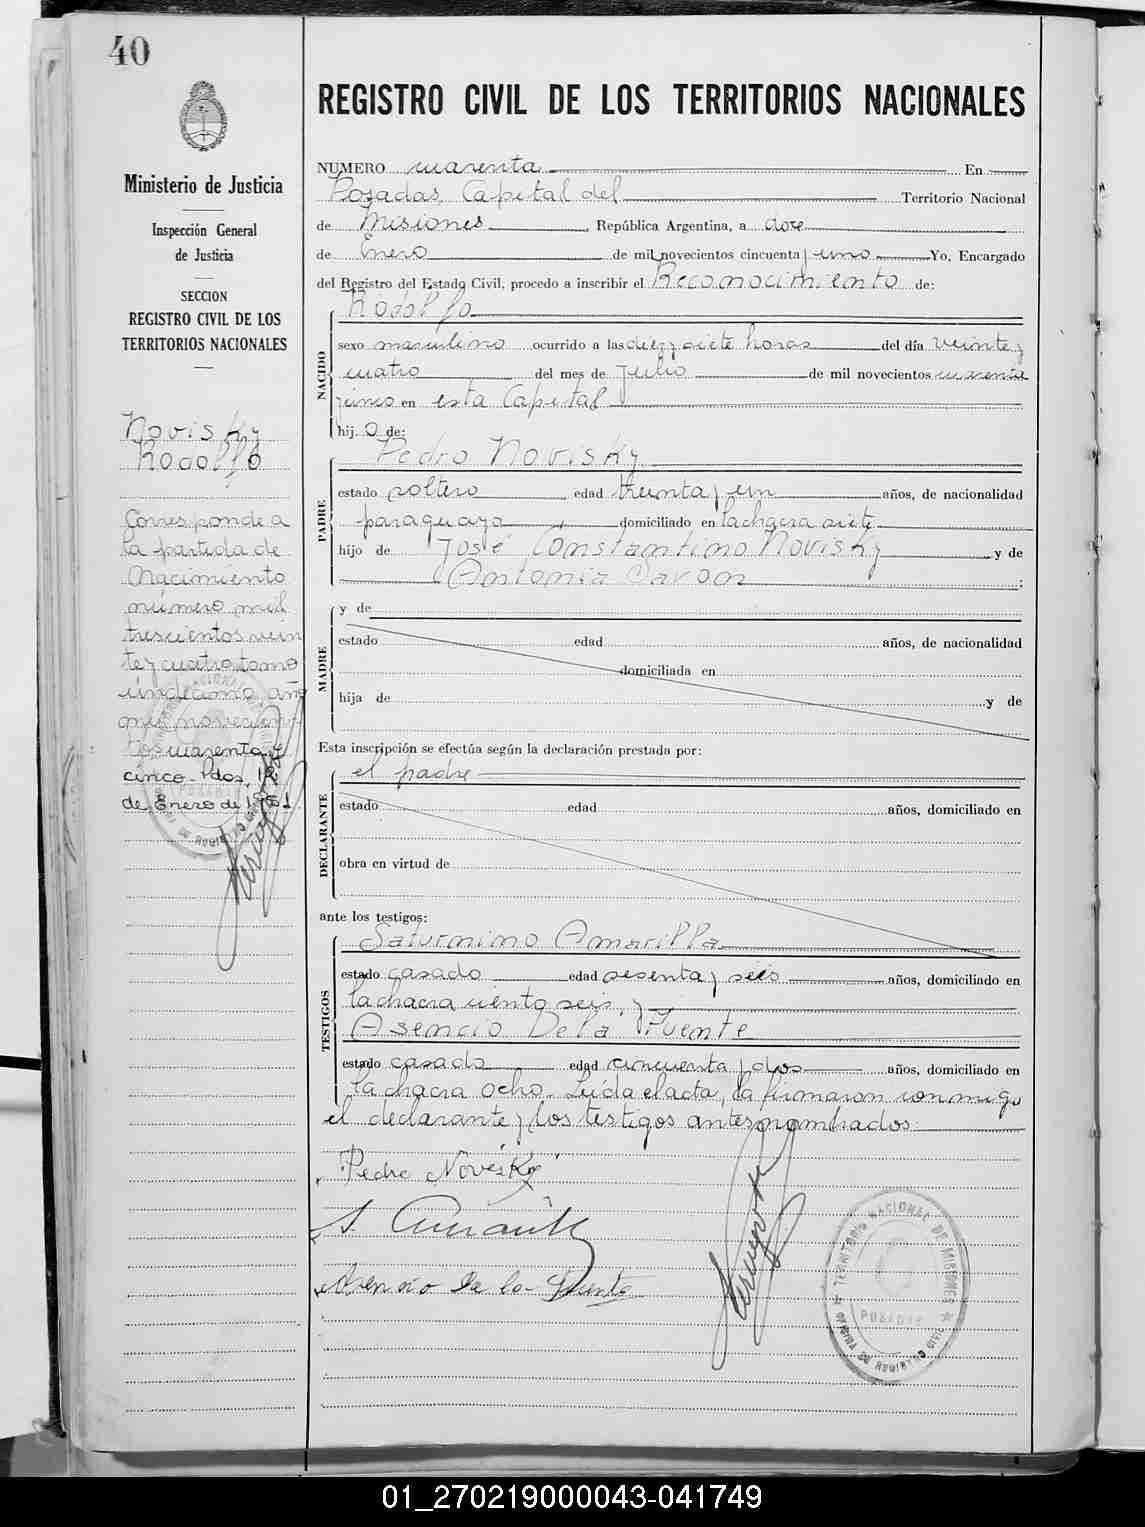 40
REGISTRO CIVIL DE LOS TERRITORIOS NACIONALES
Ministerio de Justicia
Inspección General
de Justicia
SECCION
REGISTRO CIVIL DE LOS
TERRITORIOS NACIONALES
Novisky
Rodolfo
Corresponde a
la partida de
Nacimiento
número mil
trescientos vein
te y cuatro, tomo
undécimo, año
mil novecien
tos cuarenta y
cinco. Pdas, 12
de Enero de 1951
NUMERO cuarenta En
Posadas, Capital del Territorio Nacional
de Misiones, República Argentina, a doce
de Enero de mil novecientos cincuenta y uno Yo, Encargado
del Registro del Estado Civil, procedo a inscribir el Reconocimiento de:
NACIDO
Rodolfo
sexo masculino ocurrido a las diez y siete horas del día veinte y
cuatro del mes de Julio de mil novecientos cuarenta
y cinco en esta Capital
hij o de:
PADRE
Pedro Novisky
estado soltero, edad treinta y un años, de nacionalidad
paraguaya domiciliado en la chacra siete
hijo de José Constantino Novisky y de
Antonia;
MADRE
y de
estado edad años, de nacionalidad
domiciliada en
hija de y de
Esta inscripción se efectúa según la declaración prestada por:
DECLARANTE
el padre
estado edad años, domiciliado en
obra en virtud de
ante los testigos:
TESTIGOS
Saturnino Amarilla
estado casado edad sesenta y seis años, domiciliado en
la chacra ciento seis, y
Asencio De la Fuente
estado casado edad cincuenta y dos años, domiciliado en
la chacra ocho. Leída el acta, la firmaron conmigo
el declarante y los testigos antes nombrados.
Pedro Novisky
Asencio De la Fuente
TERRITORIO NACIONAL DE MISIONES
POSADAS
OFICINA DE REGISTRO CIVIL
01_270219000043-041749